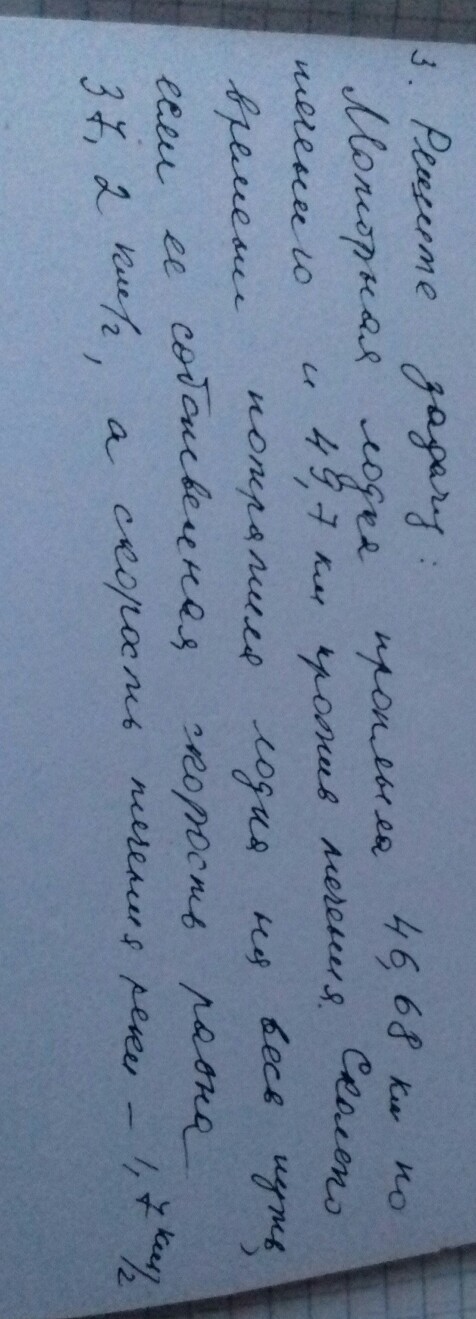 3. Решите задачу:
Моторная лодка проплыла 46,68 км по
течению и 49,7 км против течения. Сколько
времени потратила лодка на весь путь,
если ее собственная скорость равна
37,2 км/ч, а скорость течения реки – 1,7 км/ч